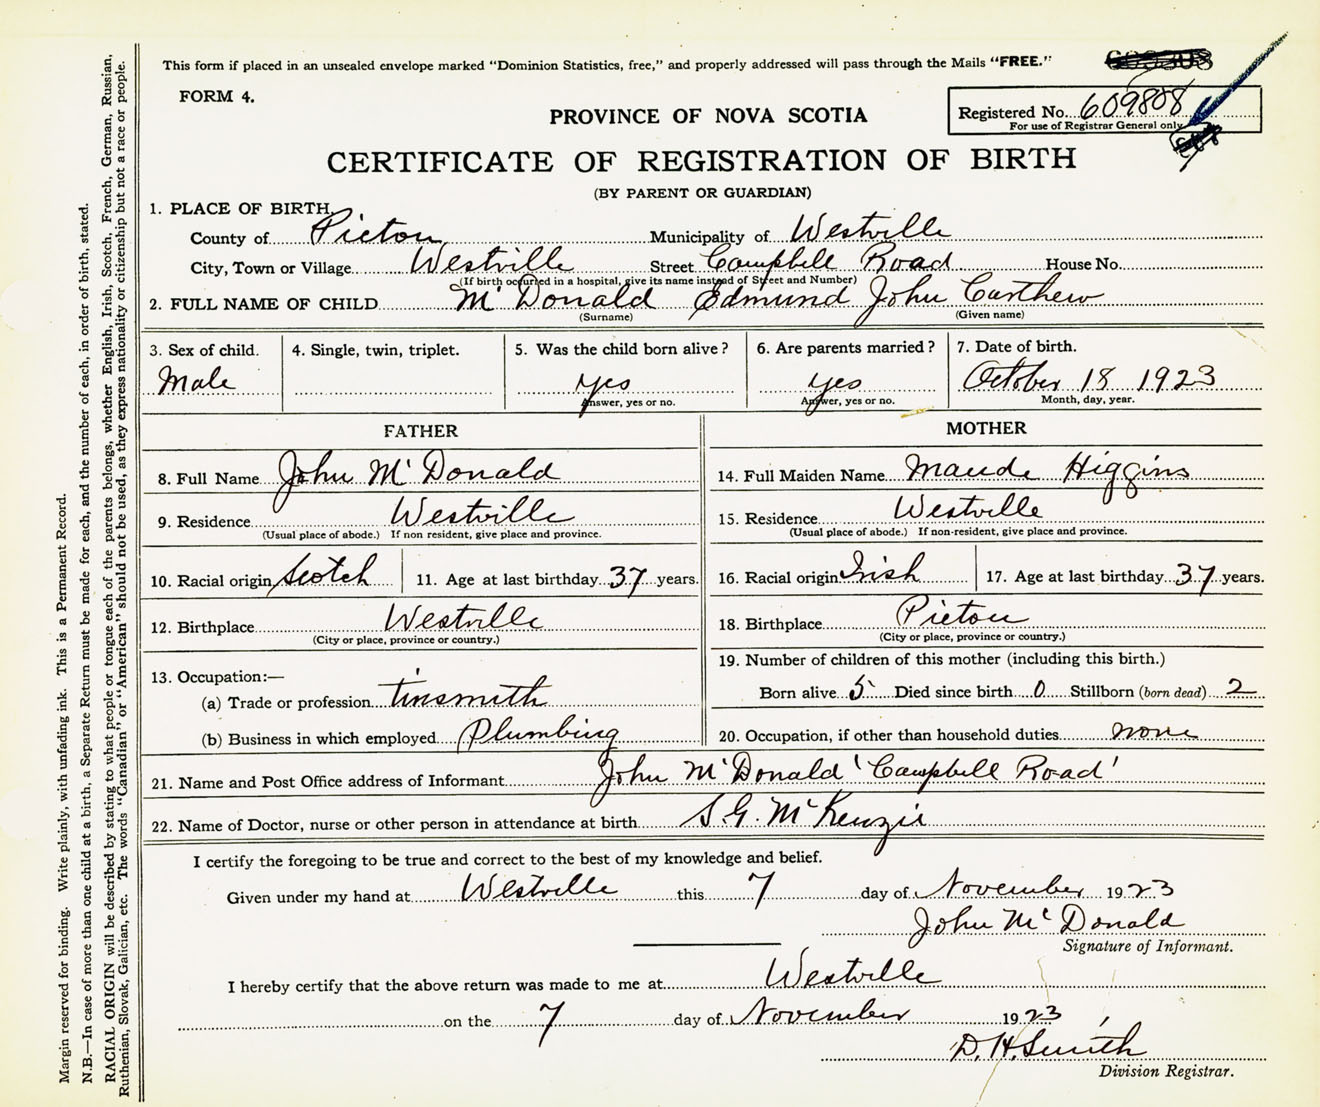 This form if placed in an unsealed envelope marked "Dominion Statistics, free," and properly addressed will pass through the Mails "FREE."
FORM 4.
PROVINCE OF NOVA SCOTIA
Registered No. 609808
For use of Registrar General only
CERTIFICATE OF REGISTRATION OF BIRTH
(BY PARENT OR GUARDIAN)
1. PLACE OF BIRTH
County of Pictou Municipality of Westville
City, Town or Village Westville Street Campbell Road House No.
(If birth occurred in a hospital, give its name instead of Street and Number)
2. FULL NAME OF CHILD Mc Donald Edmund John Carthew
(Surname) (Given name)
3. Sex of child. 4. Single, twin, triplet. 5. Was the child born alive? 6. Are parents married? 7. Date of birth.
Male yes yes October 18 1923
Answer, yes or no. Answer, yes or no. Month, day, year.
FATHER MOTHER
8. Full Name John Mc Donald 14. Full Maiden Name Maude Higgins
9. Residence Westville 15. Residence Westville
(Usual place of abode.) If non resident, give place and province. (Usual place of abode.) If non-resident, give place and province.
10. Racial origin Scotch 11. Age at last birthday 37 years. 16. Racial origin Irish 17. Age at last birthday 37 years.
12. Birthplace Westville 18. Birthplace Pictou
(City or place, province or country.) (City or place, province or country.)
13. Occupation:— 19. Number of children of this mother (including this birth.)
(a) Trade or profession tinsmith Born alive 5 Died since birth 0 Stillborn (born dead) 2
(b) Business in which employed Plumbing 20. Occupation, if other than household duties none
21. Name and Post Office address of Informant John Mc Donald 'Campbell Road'
22. Name of Doctor, nurse or other person in attendance at birth S G. Mc Kenzie
I certify the foregoing to be true and correct to the best of my knowledge and belief.
Given under my hand at Westville this 7 day of November 1923
John Mc Donald
Signature of Informant.
I hereby certify that the above return was made to me at Westville
on the 7 day of November 1923
D. H. Smith
Division Registrar.
Margin reserved for binding. Write plainly, with unfading ink. This is a Permanent Record.
N.B.—In case of more than one child at a birth, a Separate Return must be made for each, and the number of each, in order of birth, stated.
RACIAL ORIGIN will be described by stating to what people or tongue each of the parents belongs, whether English, Irish, Scotch, French, German, Russian,
Ruthenian, Slovak, Galician, etc. The words "Canadian" or "American" should not be used, as they express nationality or citizenship but not a race or people.